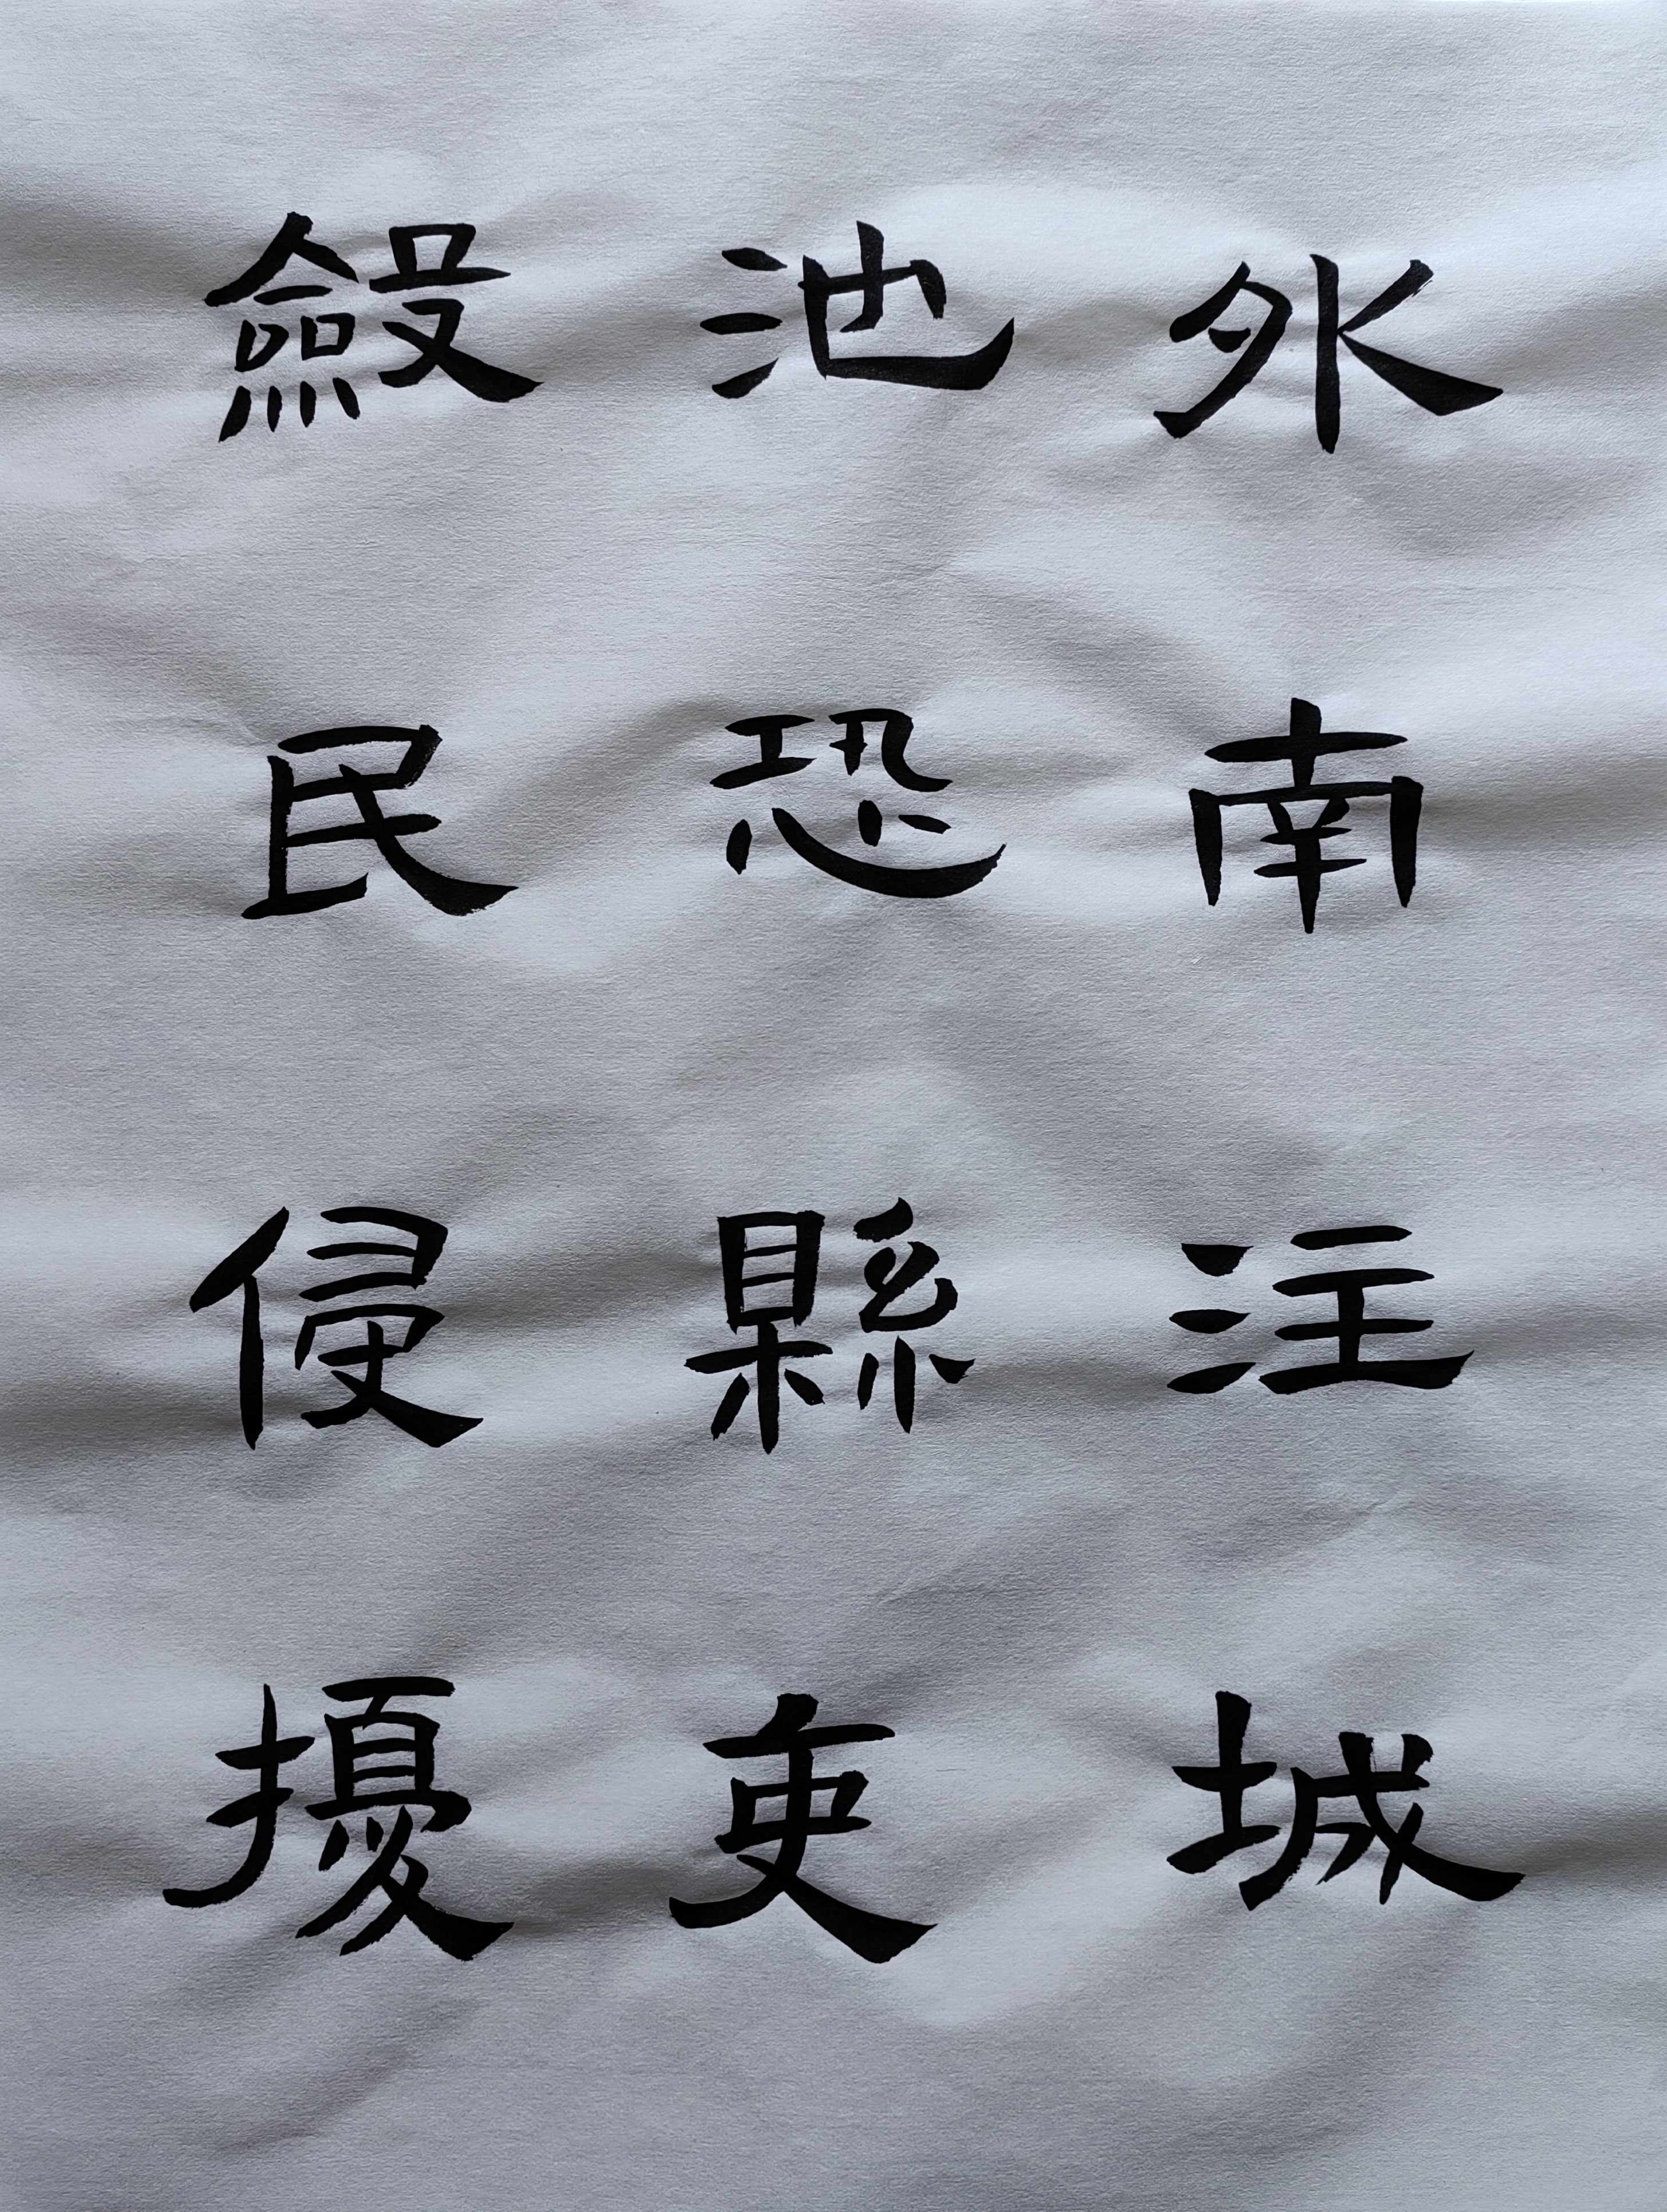 外南注城
池恐縣吏
斂民侵擾